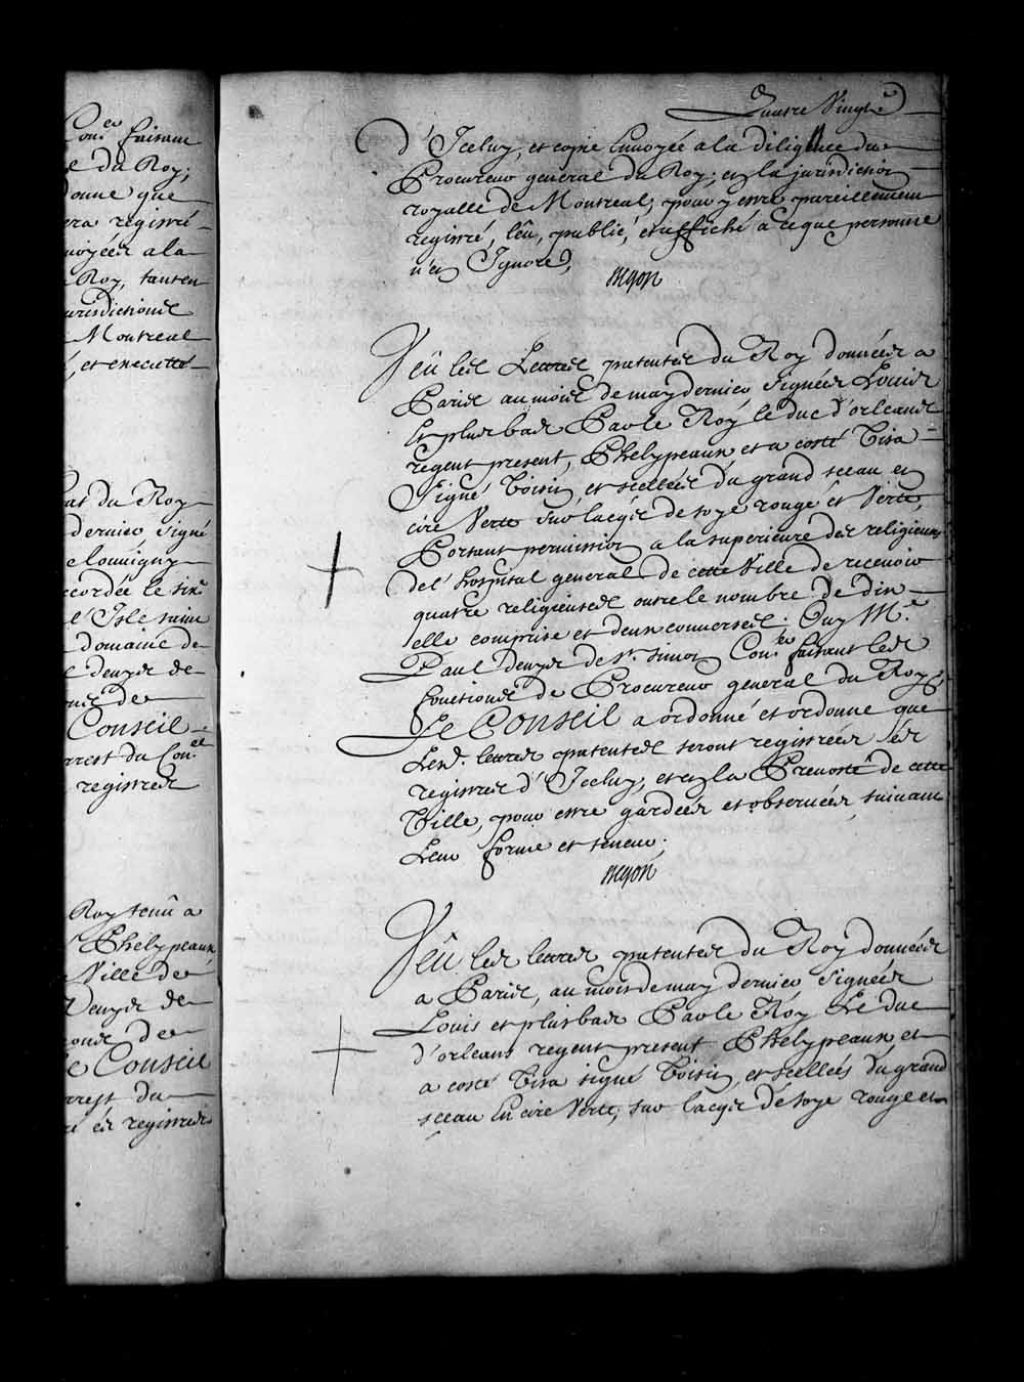 Con.er faisant
e du Roy;
donne que
era registré
nvoyées a la
Roy, tant en
urisdictions
Montreal
, et executté
at du Roy
dernier, Signé
e louvigny
ccordée le six.e
l'Isle
domaine de
e denys de
ons de
Conseil
arrest du Con.el
registres
Roy tenû a
Phelypeaux,
Ville de
Denys de
ons de
e Conseil
arrest du
és registres
Quatre Vingt
d'Iceluy, et copie Envoyée a la diligence du
Procureur general du Roy; en la jurisdiction
royalle de Montreal; pour y estre pareillement
registré, lëu, publié, et affiché a ce que personne
n'en Ignore,
Begon
Veû les Lettres patentes du Roy données a
Paris au mois de may dernier Signées Louis
Et plus bas Par le Roy le duc d'orleans
regent present, Phelypeaux et a costé Visa
Signé Voisin, et scellées du grand sceau en
cire Verte sur lacqs de soye rouge et Verte,
Portant permission a la superieure des religieuses
de l'hospital general de cette Ville de recevoir
quatre religieuses outre le nombre de dix
elle comprise et deux converses; Ouy M.e
Paul denys de S.t Simon Con.er faisant les
fonctions de Procureur general du Roy,
Le Conseil a ordonné et ordonne que
Lesd. lettres patentes seront registrées és
registres d'Iceluy, et en la Prevosté de cette
Ville, pour estre gardées et observées, suivant
Leur forme et teneur;
Begon
Veû les lettres patentes du Roy données
a Paris, au mois de may dernier Signées
Louis et plus bas Par le Roy Le duc
d'orleans regent present Phelypeaux, et
a costé Visa signé Voisin, et scellées du grand
sceau En cire Verte, sur lacqs de soye rouge et